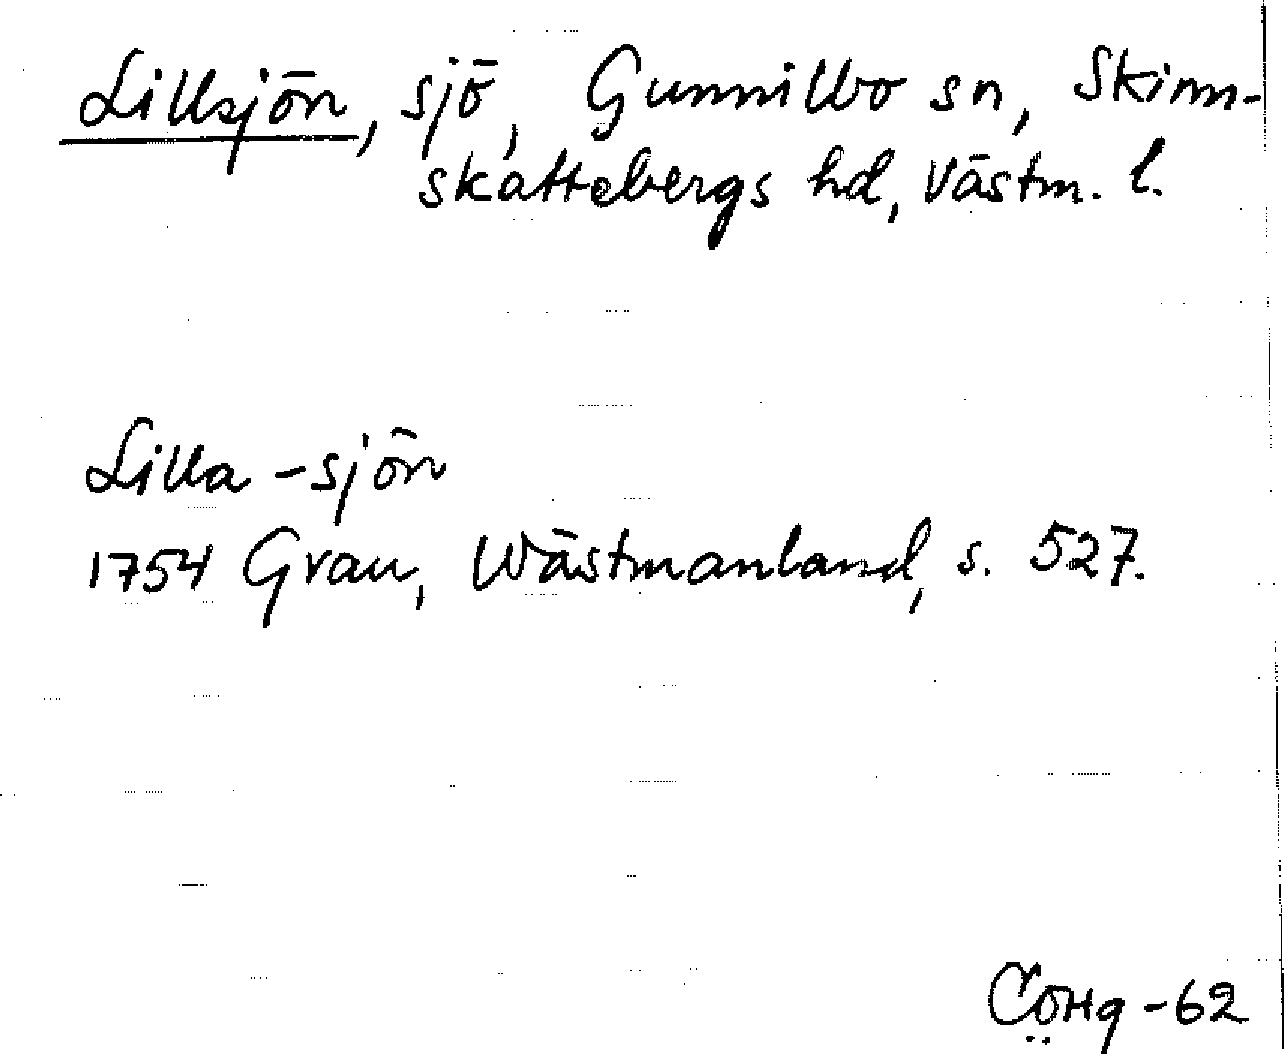 Lillsjön, sjö, Gunnilbo sn, Skinn-
skattebergs hd, Västm. l.
Lilla-sjön
1754 Grau, Wästmanland, s. 527.